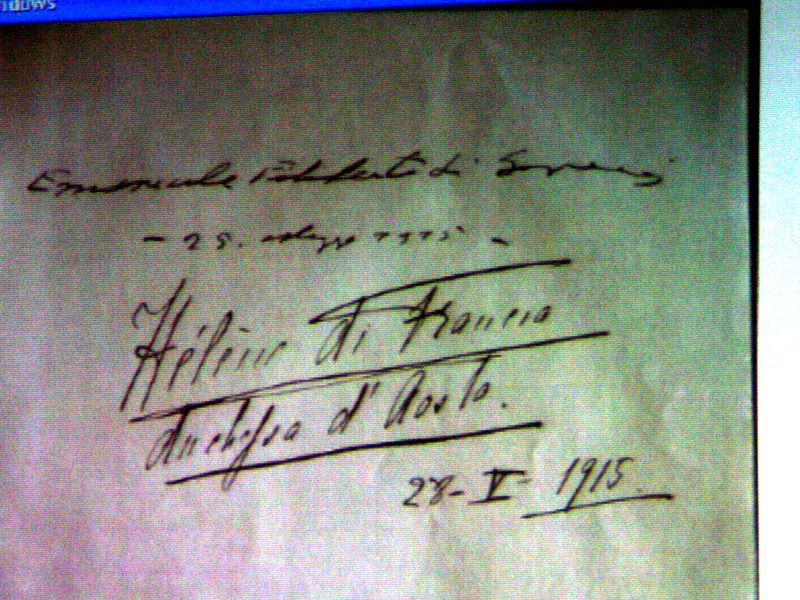 Emanuele Filiberto di Savoia
- 28. maggio 1915 -
Hélène di Francia
duchessa d'Aosta.
28-V-1915.